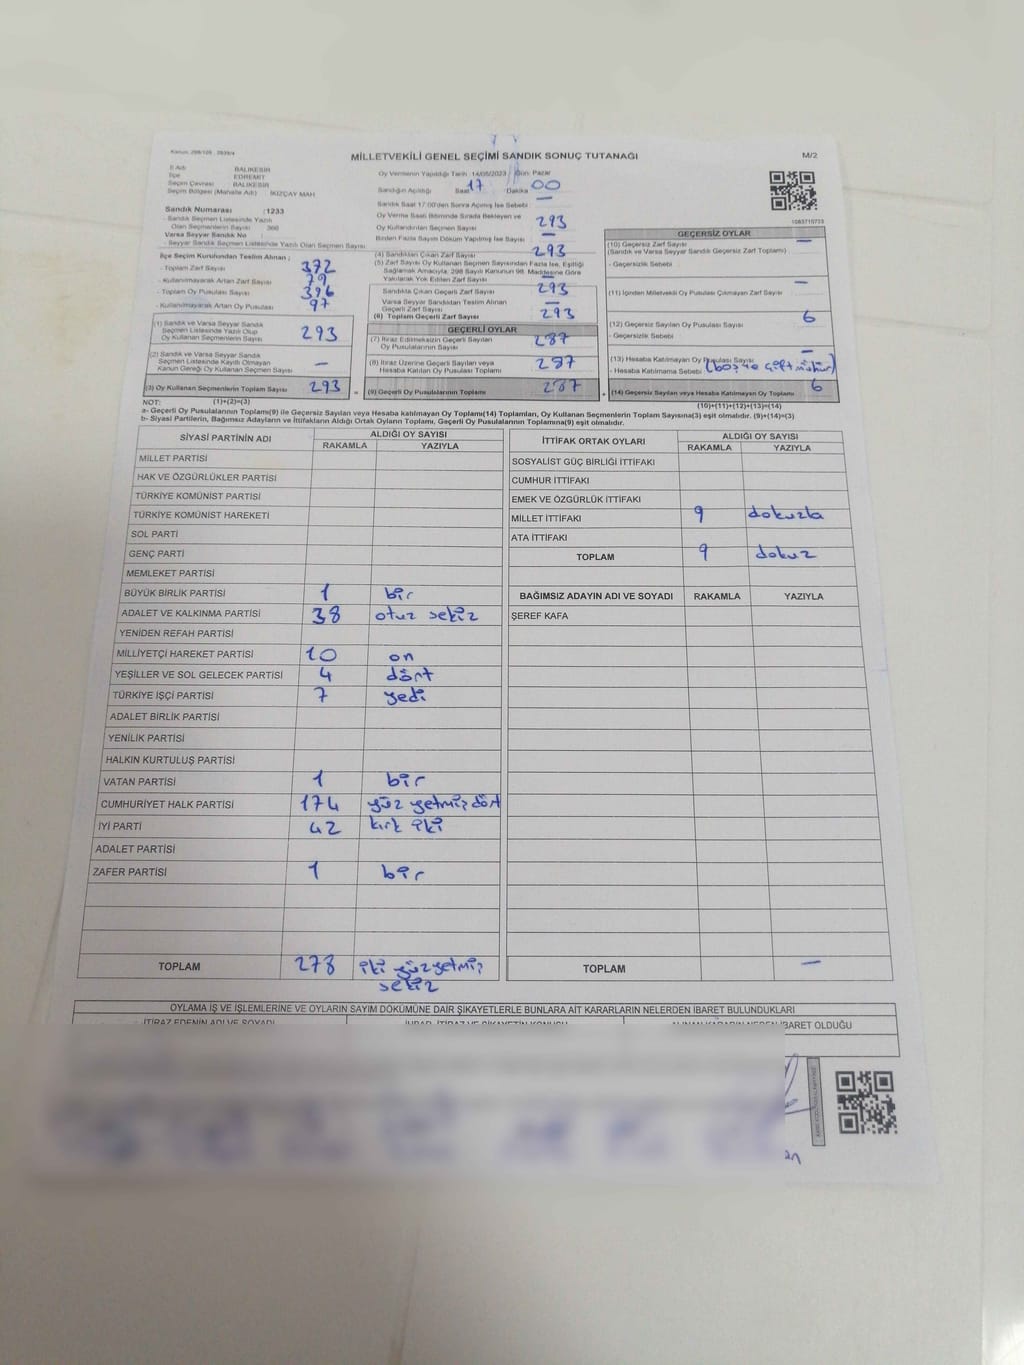 MİLLETVEKİLİ GENEL SEÇİMİ SANDIK SONUÇ TUTANAĞI
M/2
İl Adı BALIKESİR
İlçe EDREMİT
Seçim Çevresi BALIKESİR
Seçim Bölgesi (Mahalle Adı) İKİZÇAY MAH
Sandık Numarası :1233
- Sandık Seçmen Listesinde Yazılı
Olan Seçmenlerin Sayısı 360
Varsa Seyyar Sandık No :
- Seyyar Sandık Seçmen Listesinde Yazılı Olan Seçmen Sayısı
İlçe Seçim Kurulundan Teslim Alınan ;
- Toplam Zarf Sayısı 372
- Kullanılmayarak Artan Zarf Sayısı 79
- Toplam Oy Pusulası Sayısı
- Kullanılmayarak Artan Oy Pusulası 97
(1) Sandık ve Varsa Seyyar Sandık
Seçmen Listesinde Yazılı Olup
Oy Kullanan Seçmenlerin Sayısı 293
(2) Sandık ve Varsa Seyyar Sandık
Seçmen Listesinde Kayıtlı Olmayan
Kanun Gereği Oy Kullanan Seçmen Sayısı —
(3) Oy Kullanan Seçmenlerin Toplam Sayısı 293
Oy Vermenin Yapıldığı Tarih :14/05/2023 Gün: Pazar
Sandığın Açıldığı Saat 17 Dakika 00
Sandık Saat 17:00'den Sonra Açılmış İse Sebebi : —
Oy Verme Saati Bitiminde Sırada Bekleyen ve
Oy Kullandırılan Seçmen Sayısı 293
Birden Fazla Sayım Döküm Yapılmış İse Sayısı —
(4) Sandıktan Çıkan Zarf Sayısı 293
(5) Zarf Sayısı Oy Kullanan Seçmen Sayısından Fazla İse, Eşitliği
Sağlamak Amacıyla, 298 Sayılı Kanunun 98. Maddesine Göre
Yakılarak Yok Edilen Zarf Sayısı —
Sandıkta Çıkan Geçerli Zarf Sayısı 293
Varsa Seyyar Sandıktan Teslim Alınan
Geçerli Zarf Sayısı —
(6) Toplam Geçerli Zarf Sayısı 293
GEÇERLİ OYLAR
(7) İtiraz Edilmeksizin Geçerli Sayılan
Oy Pusulalarının Sayısı 287
(8) İtiraz Üzerine Geçerli Sayılan veya
Hesaba Katılan Oy Pusulalarının Sayısı 287
(9) Geçerli Oy Pusulalarının Toplamı 287
1083715733
GEÇERSİZ OYLAR
(10) Geçersiz Zarf Sayısı —
(Sandık ve Varsa Seyyar Sandık Geçersiz Zarf Toplamı)
- Geçersizlik Sebebi
(11) İçinden Milletvekili Oy Pusulası Çıkmayan Zarf Sayısı —
(12) Geçersiz Sayılan Oy Pusulası Sayısı 6
- Geçersizlik Sebebi
(13) Hesaba Katılmayan Oy Pusulası Sayısı —
- Hesaba Katılmama Sebebi (boş ve çift mühür)
(14) Geçersiz Sayılan veya Hesaba Katılmayan Oy Toplamı 6
NOT: (1)+(2)=(3) (10)+(11)+(12)+(13)=(14)
a- Geçerli Oy Pusulalarının Toplamı(9) ile Geçersiz Sayılan veya Hesaba katılmayan Oy Toplamı(14) Toplamları, Oy Kullanan Seçmenlerin Toplam Sayısına(3) eşit olmalıdır. (9)+(14)=(3)
b- Siyasi Partilerin, Bağımsız Adayların ve İttifakların Aldığı Ortak Oyların Toplamı, Geçerli Oy Pusulalarının Toplamına(9) eşit olmalıdır.
SİYASİ PARTİNİN ADI ALDIĞI OY SAYISI
RAKAMLA YAZIYLA
MİLLET PARTİSİ
HAK VE ÖZGÜRLÜKLER PARTİSİ
TÜRKİYE KOMÜNİST PARTİSİ
TÜRKİYE KOMÜNİST HAREKETİ
SOL PARTİ
GENÇ PARTİ
MEMLEKET PARTİSİ
BÜYÜK BİRLİK PARTİSİ 1 bir
ADALET VE KALKINMA PARTİSİ 38 otuz sekiz
YENİDEN REFAH PARTİSİ
MİLLİYETÇİ HAREKET PARTİSİ 10 on
YEŞİLLER VE SOL GELECEK PARTİSİ 4 dört
TÜRKİYE İŞÇİ PARTİSİ 7 yedi
ADALET BİRLİK PARTİSİ
YENİLİK PARTİSİ
HALKIN KURTULUŞ PARTİSİ
VATAN PARTİSİ 1 bir
CUMHURİYET HALK PARTİSİ 174 yüz yetmiş dört
İYİ PARTİ 42 kırk iki
ADALET PARTİSİ
ZAFER PARTİSİ 1 bir
TOPLAM 278 iki yüz yetmiş
sekiz
İTTİFAK ORTAK OYLARI ALDIĞI OY SAYISI
RAKAMLA YAZIYLA
SOSYALİST GÜÇ BİRLİĞİ İTTİFAKI
CUMHUR İTTİFAKI
EMEK VE ÖZGÜRLÜK İTTİFAKI
MİLLET İTTİFAKI 9
ATA İTTİFAKI
TOPLAM 9 dokuz
BAĞIMSIZ ADAYIN ADI VE SOYADI RAKAMLA YAZIYLA
ŞEREF KAFA
TOPLAM —
OYLAMA İŞ VE İŞLEMLERİNE VE OYLARIN SAYIM DÖKÜMÜNE DAİR ŞİKAYETLERLE BUNLARA AİT KARARLARIN NELERDEN İBARET BULUNDUKLARI
İTİRAZ EDENİN ADI VE SOYADI
İBARET OLDUĞU